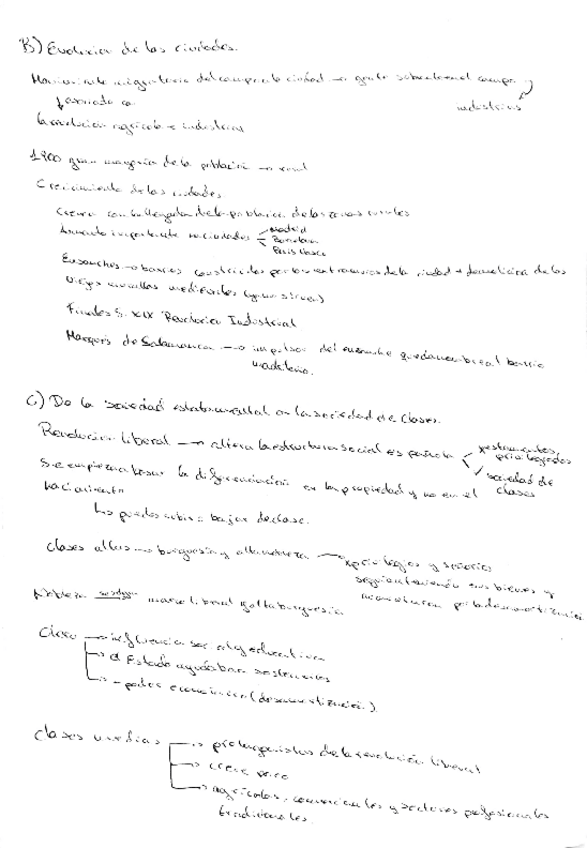 B) Evolución de las ciudades.
Movimiento migratorio del campo a la ciudad → gente sobrante en el campo y
favorecido
industrias
la revolución agrícola e industrias
1800 gran mayoría de la población → rural
Crecimiento de las ciudades
Crecen con la llegada de la población de las zonas rurales
Aumento importante en ciudades
Madrid
Barcelona
País Vasco
Ensanches → barrios construidos por los extrarradios de la ciudad + demolición de las
viejas murallas medievales (ya no sirven)
Finales S. XIX Revolución Industrial
Marqués de Salamanca → impulsor del ensanche que da nombre al barrio
madrileño.
C) De la sociedad estabamental a la sociedad de clases.
Revolución liberal → altera la estructura social española
x estamentos, privilegiados
✓ sociedad de clases
Se empieza a basar la diferenciación en la propiedad y no en el
nacimiento
puedes subir o bajar de clase.
Clases altas → burguesía y alta nobleza → x privilegios y señoríos
seguían teniendo sus bienes y
por la desamortización
Nobleza marco liberal y alta burguesía
Clero → influencia social y educativa
→ el Estado ayudaba a sostenerlos
→ - poder económico (desamortización)
Clases medias → protagonistas de la revolución liberal
→ crece poco
→ agrícolas, comerciantes y sectores profesionales
tradicionales.